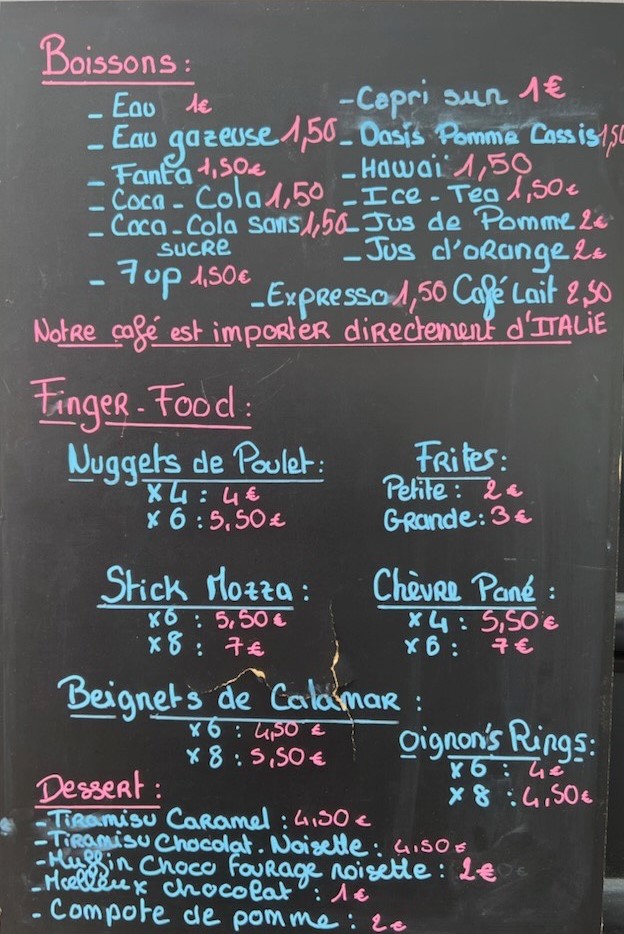 Boissons :
- Eau 1€
- Eau gazeuse 1,50
- Fanta 1,50€
- Coca - Cola 1,50
- Coca - Cola sans 1,50
sucre
- 7 up 1,50€
- Capri sun 1€
- Oasis Pomme Cassis 1,50
- Hawaï 1,50
- Ice - Tea 1,50€
- Jus de Pomme 2€
- Jus d'orange 2€
- Expresso 1,50 Café Lait 2,50
Notre café est importer directement d'ITALIE
Finger - Food :
Nuggets de Poulet :
x 4 : 4€
x 6 : 5,50€
Frites :
Petite : 2€
Grande : 3€
Stick Mozza :
x6 : 5,50€
x8 : 7€
Chèvre Pané :
x 4 : 5,50€
x 6 : 7€
Beignets de Calamar :
x 6 : 4,50€
x 8 : 5,50€
Oignon's Rings :
x 6 : 4€
x 8 : 4,50€
Dessert :
- Tiramisu Caramel : 4,50€
- Tiramisu Chocolat - Noisette : 4,50€
- Muffin Choco fourage noisette : 2€
- Moelleux chocolat : 1€
- Compote de pomme : 2€